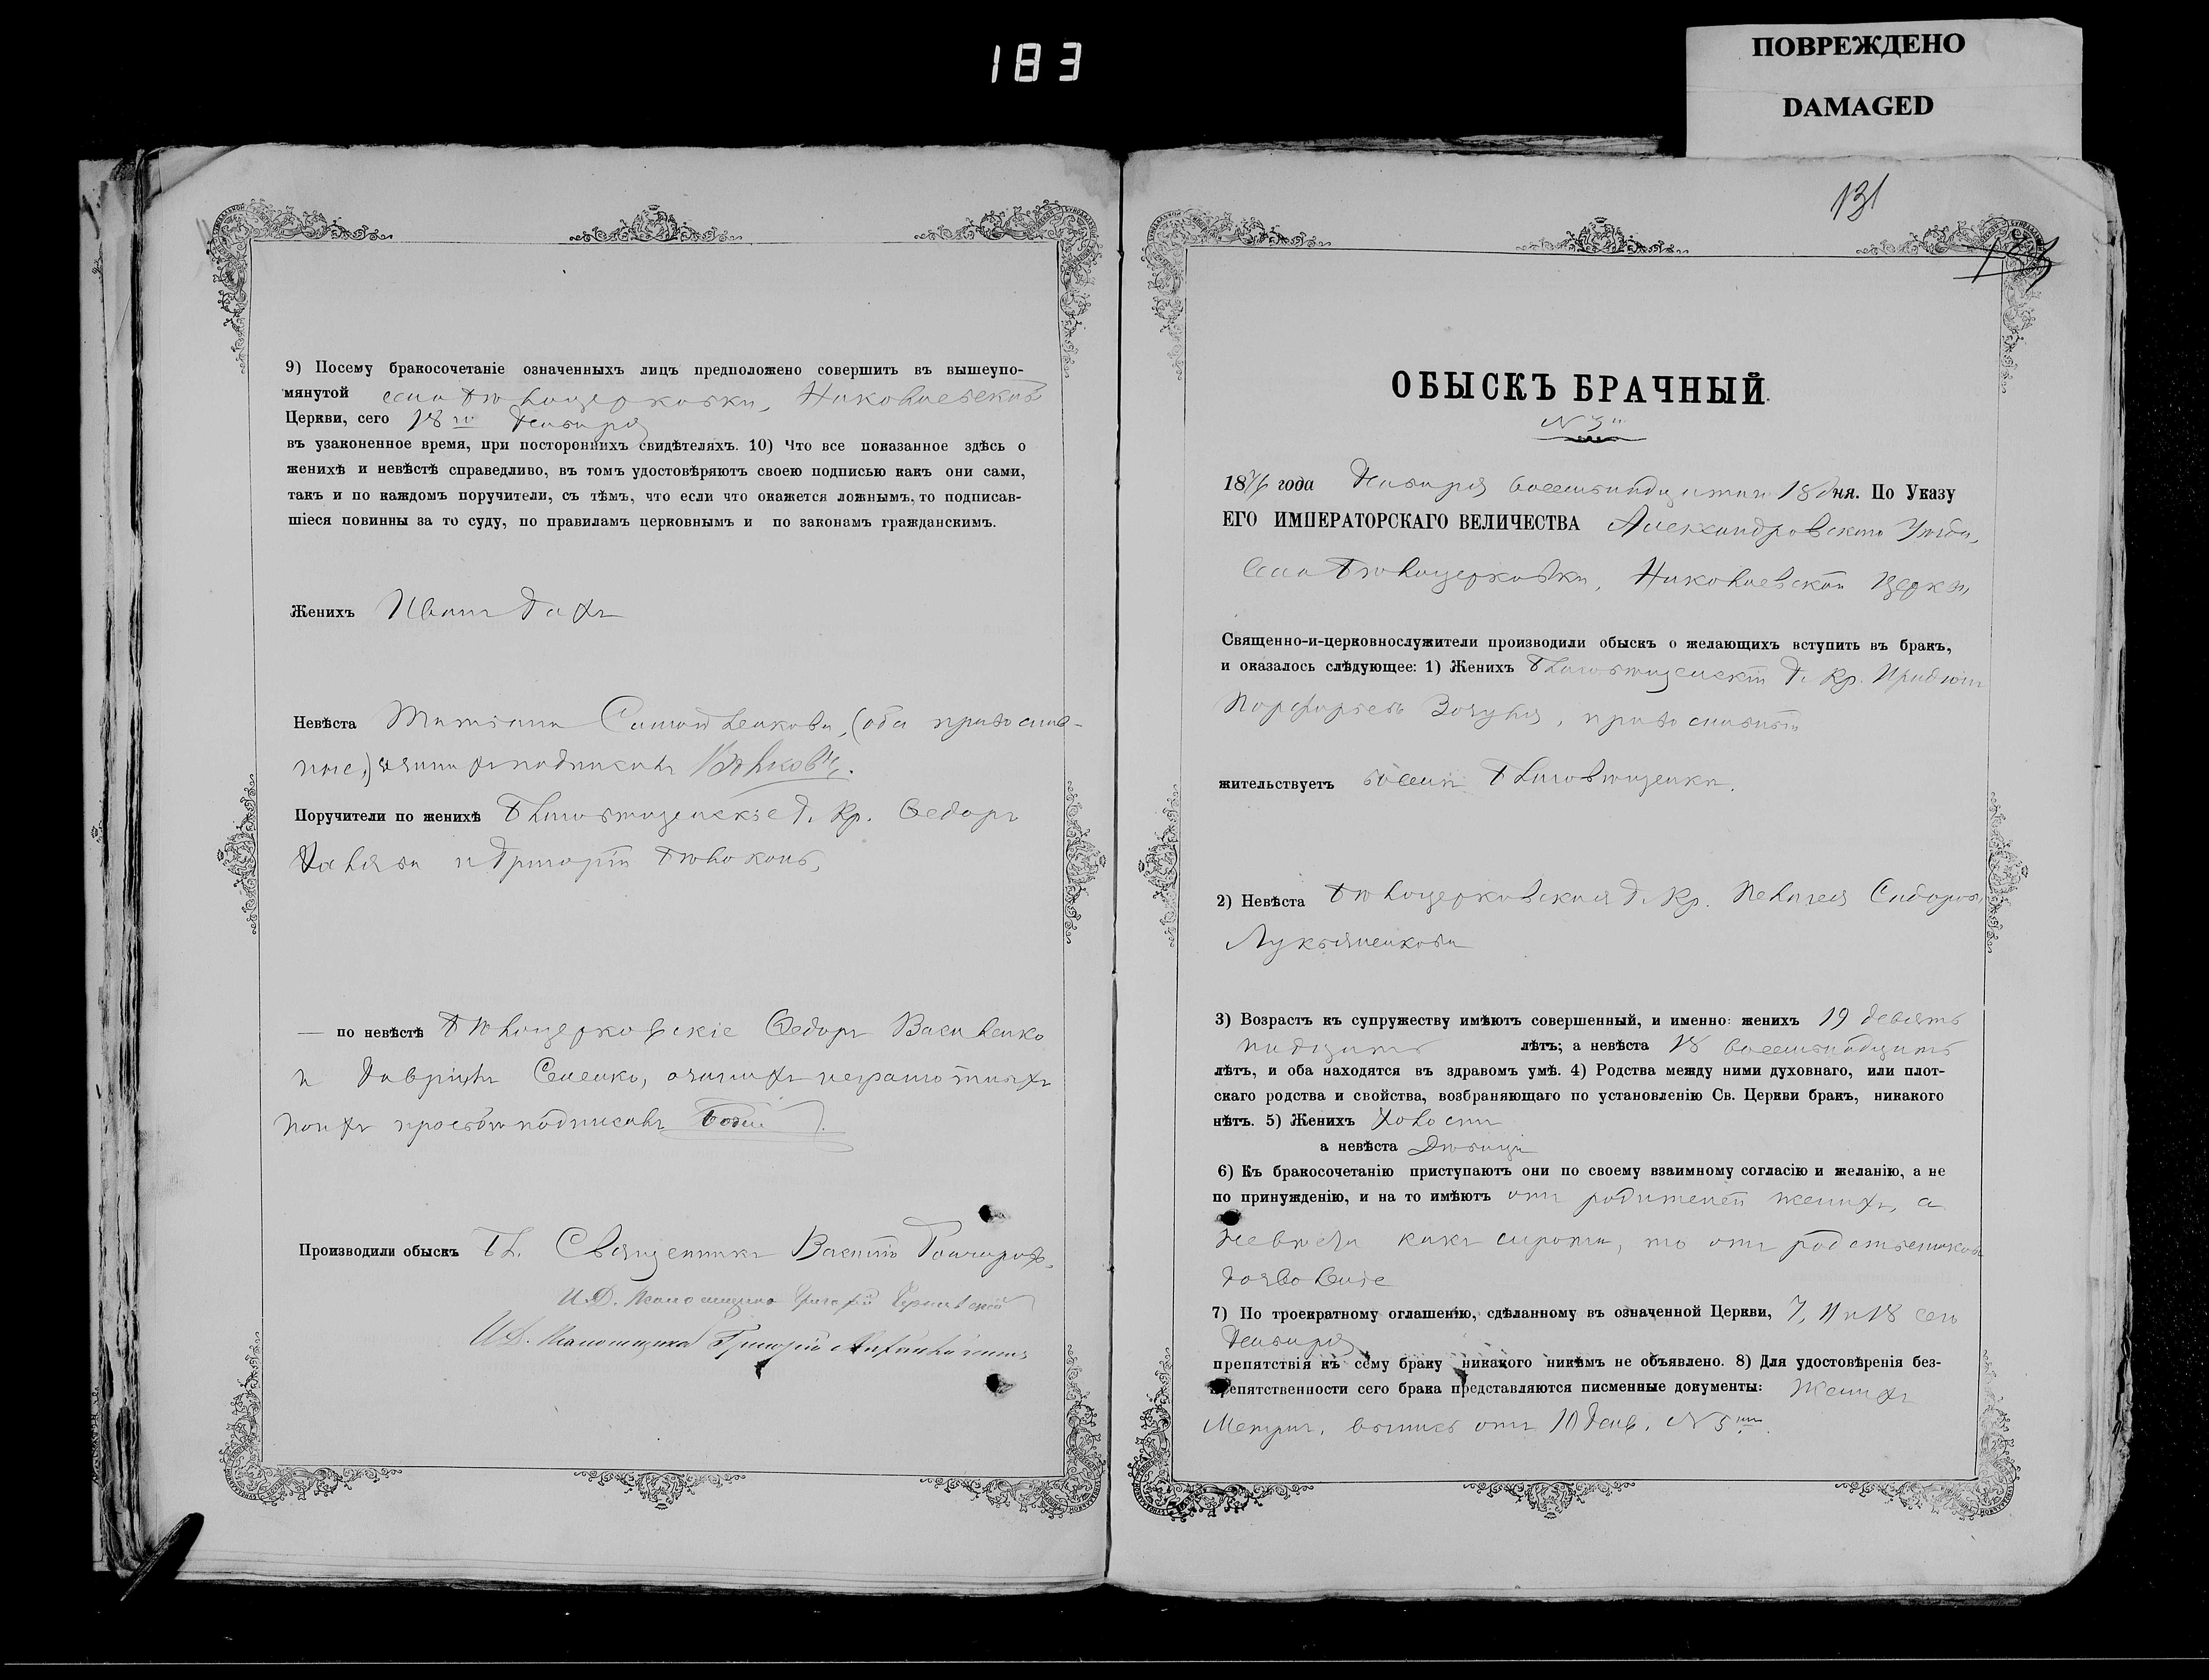 183
ПОВРЕЖДЕНО
DAMAGED
9) Посему бракосочетаніе означенныхъ лицъ предположено совершить въ вышеупо-
мянутой села Бѣлоцерковки, Николаевской
Церкви, сего 18 го Генваря
въ узаконенное время, при постороннихъ свидѣтеляхъ. 10) Что все показанное здѣсь о
женихѣ и невѣстѣ справедливо, въ томъ удостовѣряютъ своею подписью какъ они сами,
такъ и по каждомъ поручители, съ тѣмъ, что если что окажется ложнымъ, то подписав-
шіеся повинны за то суду, по правиламъ церковнымъ и по законамъ гражданскимъ.
Женихъ Иванъ
Невѣста Татіана (оба православ-
ные,) а за нихъ подписалъ
Поручители по женихѣ Благовѣщенскіе Г. Кр. Ѳедоръ
и Григорій Бѣлоконь,
— по невѣстѣ Бѣлоцерковскіе Ѳедоръ Василенко
и Гавріилъ Семенко, а за нихъ неграмотныхъ
по ихъ прозбѣ подписалъ
Производили обыскъ Бл. Священникъ Василій Гончаровъ
И.Д. Псаломщика Григорій
И.Д. Псаломщика Григорій
131
ОБЫСКЪ БРАЧНЫЙ.
N 5й
1876 года Генваря восемьнадцатаго 18 дня. По Указу
ЕГО ИМПЕРАТОРСКАГО ВЕЛИЧЕСТВА Александровскаго Уѣзда,
села Бѣлоцерковки, Николаевской Церкви,
Священно-и-церковнослужители производили обыскъ о желающихъ вступить въ бракъ,
и оказалось слѣдующее: 1) Женихъ Благовѣщенскій Г. Кр.
Порфирьевъ православный
жительствуетъ въ селѣ Благовѣщенки.
2) Невѣста Бѣлоцерковская Г. Кр. Пелагея Сидорова
Лукьяненкова
3) Возрастъ къ супружеству имѣютъ совершенный, и именно: женихъ 19 девять
надцать лѣтъ; а невѣста 18 восемьнадцать
лѣтъ, и оба находятся въ здравомъ умѣ. 4) Родства между ними духовнаго, или плот-
скаго родства и свойства, возбраняющаго по установленію Св. Церкви бракъ, никакого
нѣтъ. 5) Женихъ холостъ
а невѣста Дѣвица
6) Къ бракосочетанію приступаютъ они по своему взаимному согласію и желанію, а не
по принужденію, и на то имѣютъ отъ родителей жениха, а
невѣста какъ сирота, то отъ родствениковъ
дозволеніе
7) По троекратному оглашенію, сдѣланному въ означенной Церкви, 7, 11 и 18 сего
Генваря
препятствія къ сему браку никакого никѣмъ не объявлено. 8) Для удостовѣренія без-
препятственности сего брака представляются писменные документы: Женихъ
Метрич. выпись отъ 10 Генв. N 5